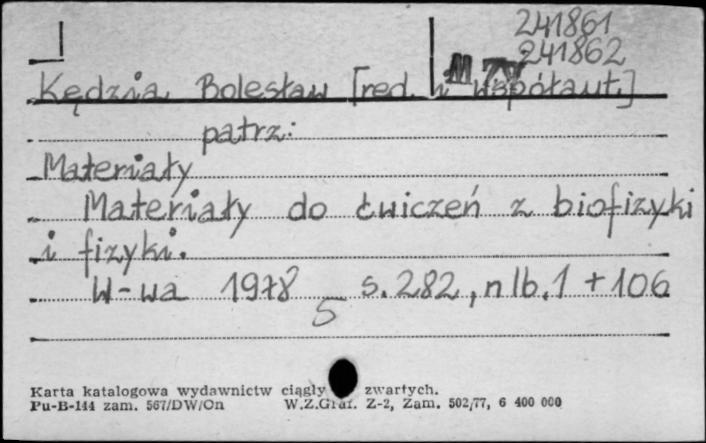 241861
241862
Kędzia Bolesław [red. i współaut.]
patrz:
Materiały
Materiały do ćwiczeń z biofizyki
i fizyki.
W-wa 1978 s. 282, nlb. 1 + 106
5
Karta katalogowa wydawnictw ciągły zwartych.
Pu-B-144 zam. 567/DW/On W.Z.Graf. Z-2, Zam. 502/77, 6 400 000